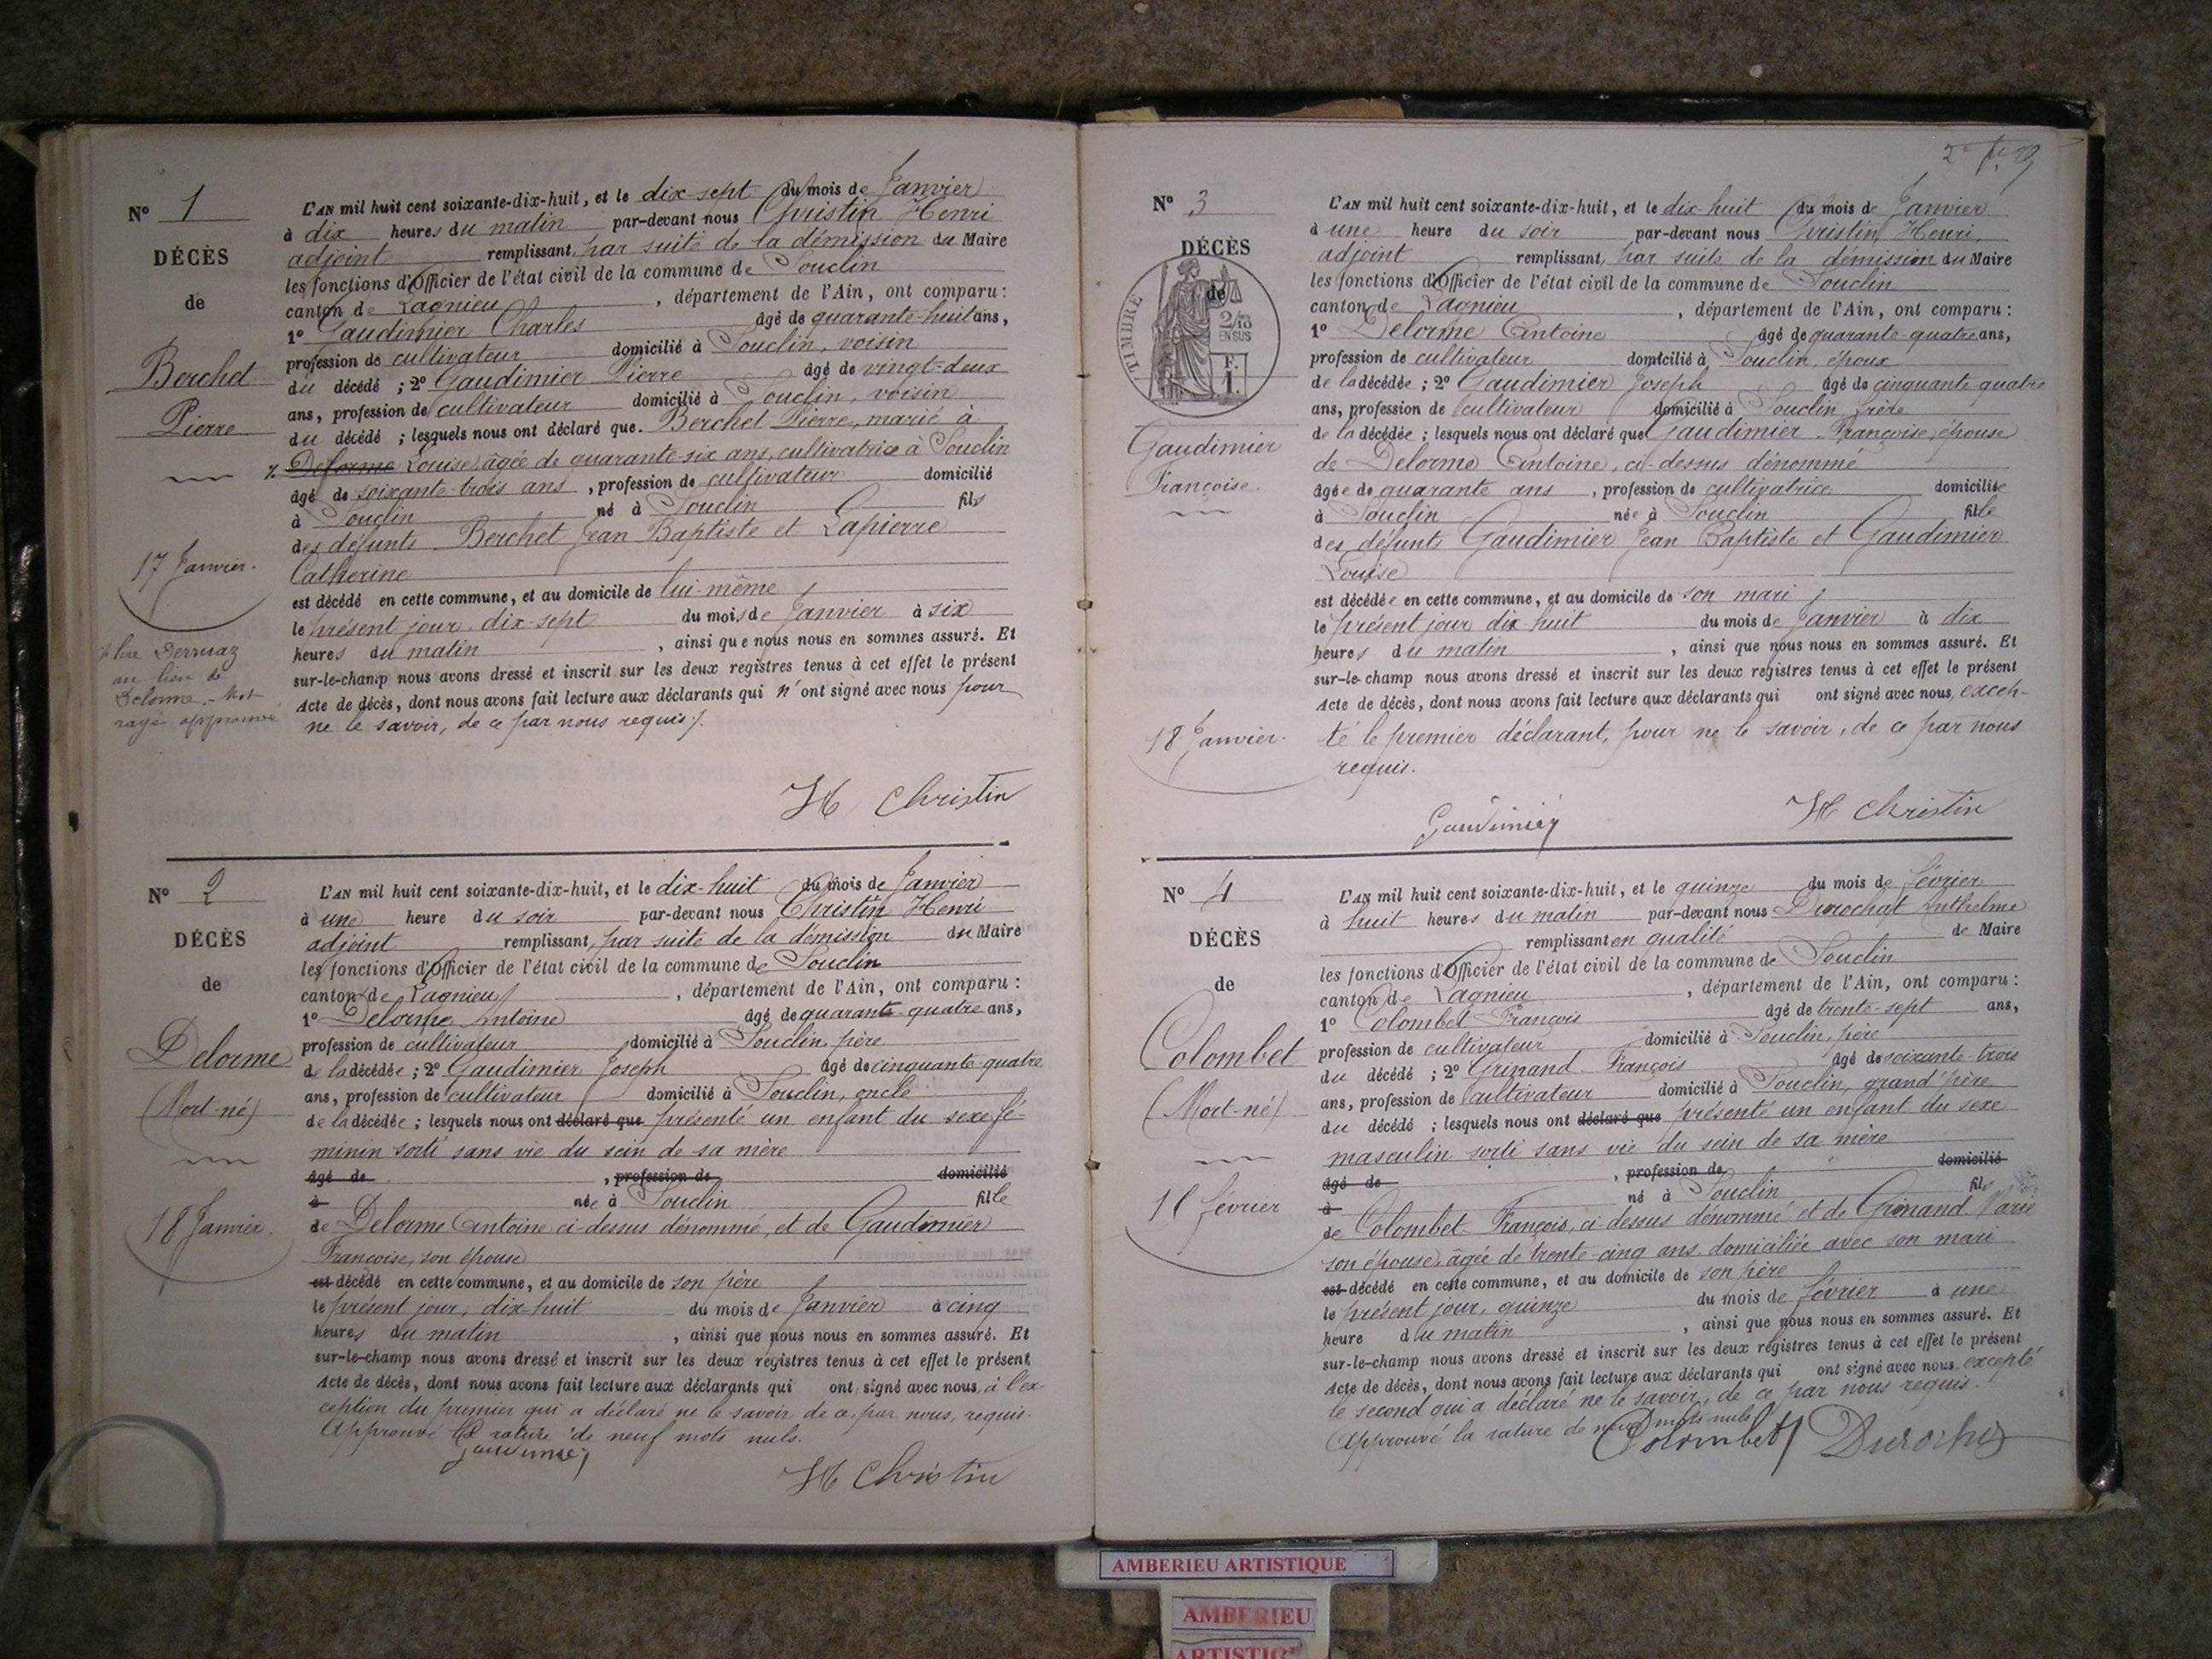 N° 1
DÉCÈS
de
Berchet
Pierre
17 Janvier.
% lire Derruaz
au lieu de
Delorme. Mot
rayé approuvé
L'AN mil huit cent soixante-dix-huit, et le dix-sept du mois de Janvier
à dix heures du matin par-devant nous Christin Henri
adjoint remplissant, par suite de la démission du Maire
les fonctions d'Officier de l'état civil de la commune de Souclin
canton de Lagnieu, département de l'Ain, ont comparu :
1° Gaudimier Charles âgé de quarante-huit ans,
profession de cultivateur domicilié à Souclin, voisin
du décédé ; 2° Gaudimier Pierre âgé de vingt-deux
ans, profession de cultivateur domicilié à Souclin, voisin
du décédé ; lesquels nous ont déclaré que Berchet Pierre, marié à
% Delorme Louise, âgée de quarante-six ans, cultivatrice à Souclin
âgé de soixante-trois ans, profession de cultivateur domicilié
à Souclin né à Souclin fils
des défunts Berchet Jean Baptiste et Lapierre
Catherine
est décédé en cette commune, et au domicile de lui-même,
le présent jour, dix-sept du mois de Janvier à six
heures du matin, ainsi que nous nous en sommes assuré. Et
sur-le-champ nous avons dressé et inscrit sur les deux registres tenus à cet effet le présent
Acte de décès, dont nous avons fait lecture aux déclarants qui n'ont signé avec nous pour
ne le savoir, de ce par nous requis.
H Christin
N° 2
DÉCÈS
de
Delorme
(Mort-né)
18 Janvier.
L'AN mil huit cent soixante-dix-huit, et le dix-huit du mois de Janvier
à une heure du soir par-devant nous Christin Henri
adjoint remplissant, par suite de la démission du Maire
les fonctions d'Officier de l'état civil de la commune de Souclin
canton de Lagnieu, département de l'Ain, ont comparu :
1° Delorme Antoine âgé de quarante-quatre ans,
profession de cultivateur domicilié à Souclin, père
de la décédée ; 2° Gaudimier Joseph âgé de cinquante-quatre
ans, profession de cultivateur domicilié à Souclin, oncle
de la décédée ; lesquels nous ont déclaré que présenté un enfant du sexe fé=
minin sorti sans vie du sein de sa mère
âgé de , profession de domicilié
à née à Souclin fille
de Delorme Antoine ci-dessus dénommé, et de Gaudimier
Françoise, son épouse
est décédé en cette commune, et au domicile de son père,
le présent jour, dix-huit du mois de Janvier à cinq
heures du matin, ainsi que nous nous en sommes assuré. Et
sur-le-champ nous avons dressé et inscrit sur les deux registres tenus à cet effet le présent
Acte de décès, dont nous avons fait lecture aux déclarants qui ont signé avec nous, à l'ex-
ception du premier qui a déclaré ne le savoir, de ce par nous, requis.
Approuvé la rature de neuf mots nuls.
Gaudimier
H Christin
N° 3
DÉCÈS
de
TIMBRE
2/10
EN SUS
F.
1.
Gaudimier
Françoise.
18 Janvier.
L'AN mil huit cent soixante-dix-huit, et le dix-huit du mois de Janvier
à une heure du soir par-devant nous Christin Henri,
adjoint remplissant, par suite de la démission du Maire
les fonctions d'Officier de l'état civil de la commune de Souclin
canton de Lagnieu, département de l'Ain, ont comparu :
1° Delorme Antoine âgé de quarante-quatre ans,
profession de cultivateur domicilié à Souclin, époux
de la décédée ; 2° Gaudimier Joseph âgé de cinquante quatre
ans, profession de cultivateur domicilié à Souclin frère
de la décédée ; lesquels nous ont déclaré que Gaudimier Françoise, épouse
de Delorme Antoine, ci-dessus dénommé
âgée de quarante ans, profession de cultivatrice domiciliée
à Souclin née à Souclin fille
des défunts Gaudimier Jean Baptiste et Gaudimier
Louise
est décédée en cette commune, et au domicile de son mari,
le présent jour dix huit du mois de Janvier à dix
heures du matin, ainsi que nous nous en sommes assuré. Et
sur-le-champ nous avons dressé et inscrit sur les deux registres tenus à cet effet le présent
Acte de décès, dont nous avons fait lecture aux déclarants qui ont signé avec nous, excep-
té le premier déclarant, pour ne le savoir, de ce par nous
requis.
Gaudimier
H Christin
N° 4
DÉCÈS
de
Colombet
(Mort-né)
février
L'AN mil huit cent soixante-dix-huit, et le quinze du mois de février
à huit heures du matin par-devant nous Durochat Anthelme
remplissant en qualité de Maire
les fonctions d'Officier de l'état civil de la commune de Souclin
canton de Lagnieu, département de l'Ain, ont comparu :
1° Colombet François âgé de trente-sept ans,
profession de cultivateur domicilié à Souclin, père
du décédé ; 2° Grinand François âgé de soixante-trois
ans, profession de cultivateur domicilié à Souclin, grand'père
du décédé ; lesquels nous ont déclaré que présenté un enfant du sexe
masculin sorti sans vie du sein de sa mère
âgé de , profession de domicilié
à né à Souclin fils
de Colombet François, ci-dessus dénommé et de Grinand Marie
son épouse, âgée de trente-cinq ans, domiciliée avec son mari
est décédé en cette commune, et au domicile de son père
le présent jour, quinze du mois de février à une
heure du matin, ainsi que nous nous en sommes assuré. Et
sur-le-champ nous avons dressé et inscrit sur les deux registres tenus à cet effet le présent
Acte de décès, dont nous avons fait lecture aux déclarants qui ont signé avec nous, excepté
le second qui a déclaré ne le savoir, de ce par nous requis.
Approuvé la rature de neuf mots nuls
Colombet Durochat
AMBERIEU ARTISTIQUE
AMBERIEU
ARTISTIQ